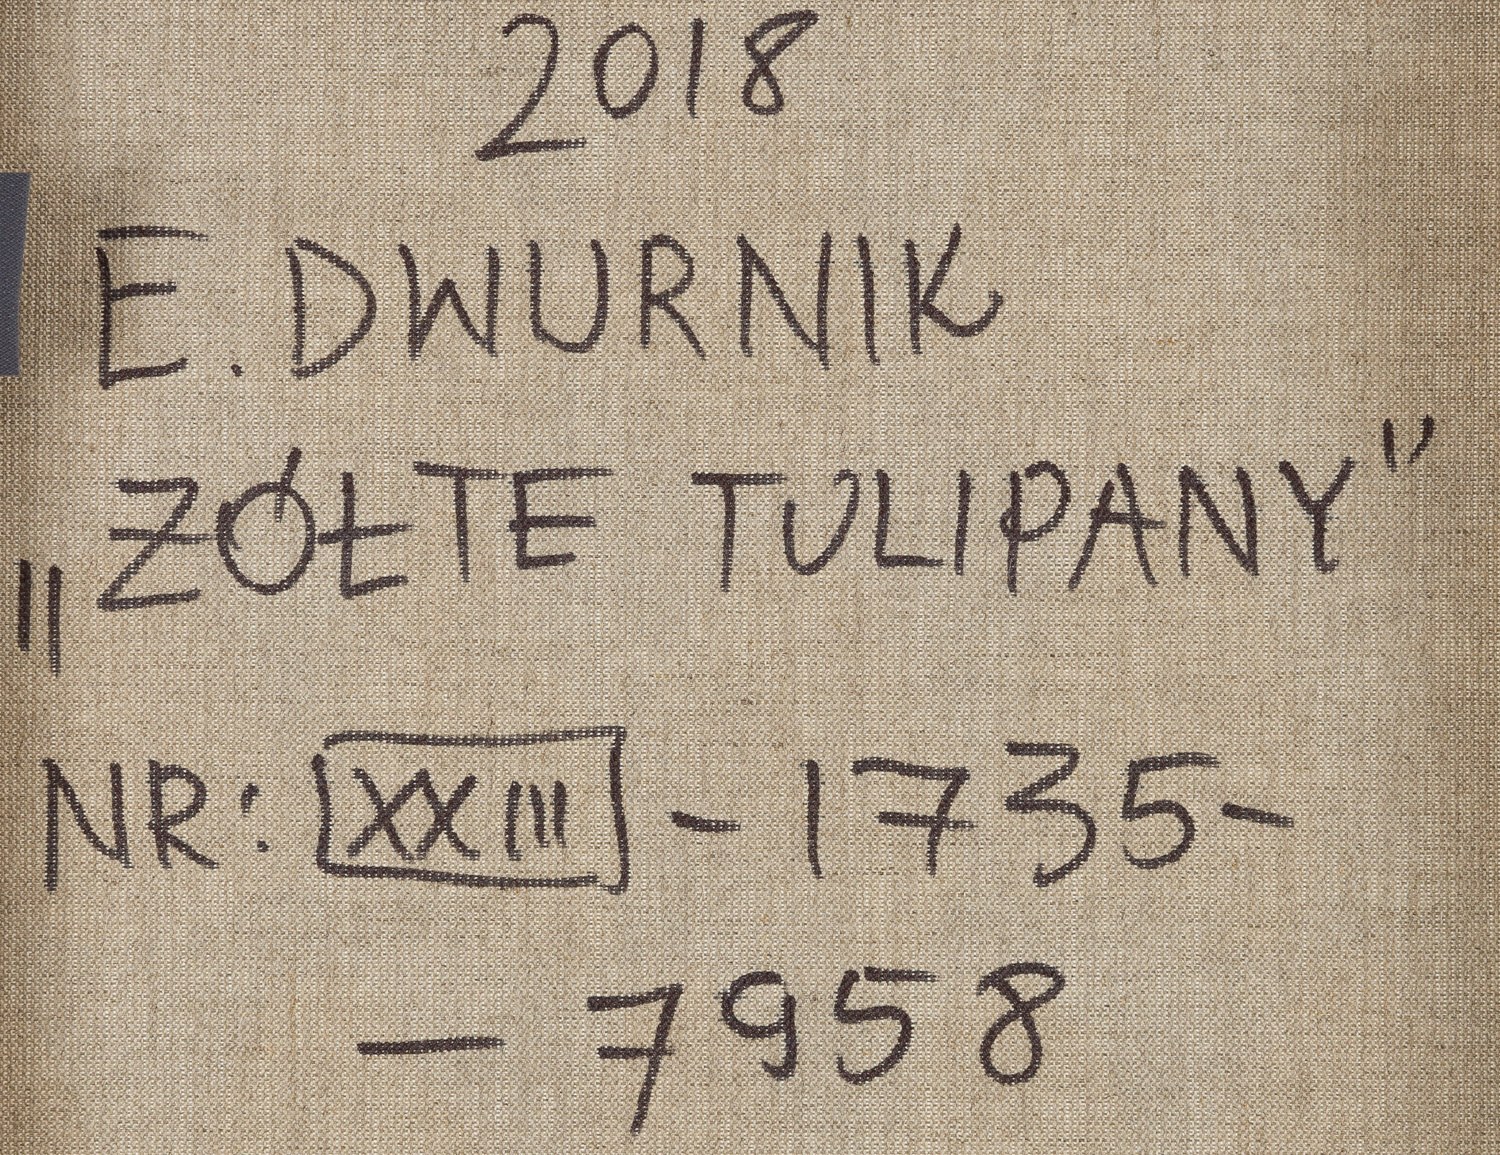 2018
E. DWURNIK
„ŻÓŁTE TULIPANY"
NR: XXIII - 1735-
- 7958